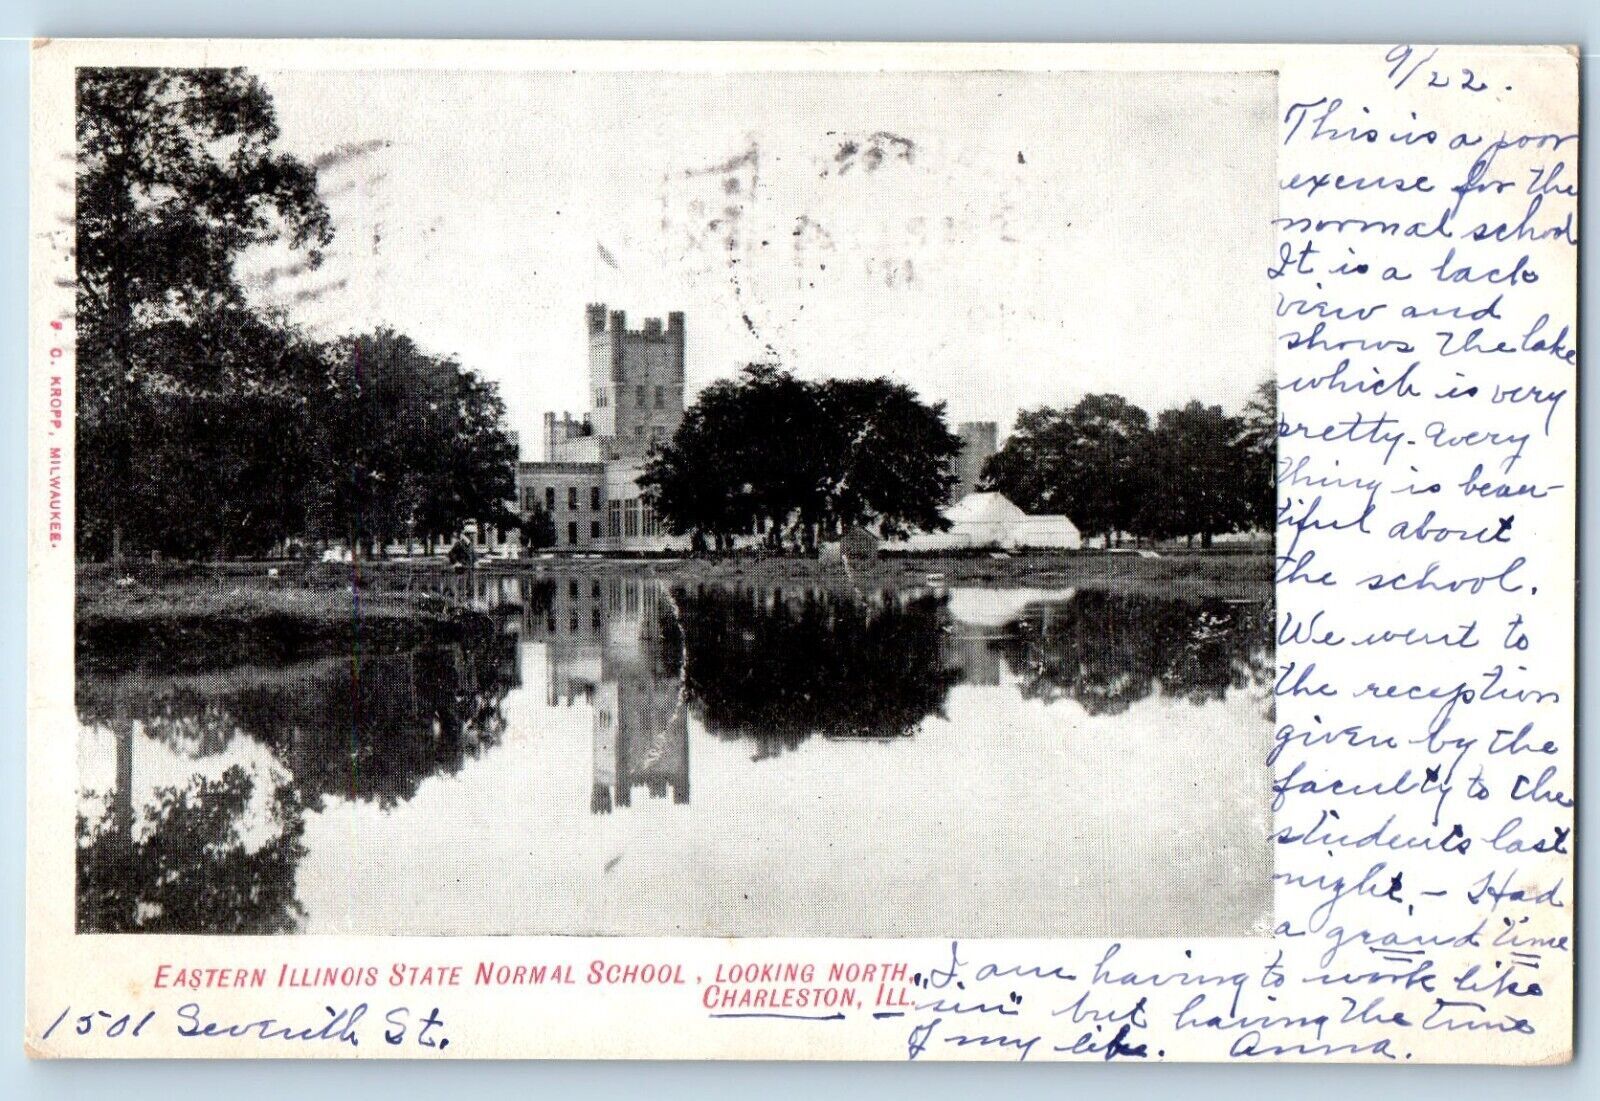 9/22.
This is a poor
excuse for the
normal school
It is a back
view and
shows the lake
which is very
pretty. Every
thing is beau-
tiful about
the school.
We went to
the reception
given by the
faculty to the
students last
night, - Had
a grand time
"I am having to work like
"sin" but having the time
of my life. Anna.
EASTERN ILLINOIS STATE NORMAL SCHOOL, LOOKING NORTH,
CHARLESTON, ILL.
1501 Seventh St.
C. KROPP, MILWAUKEE.